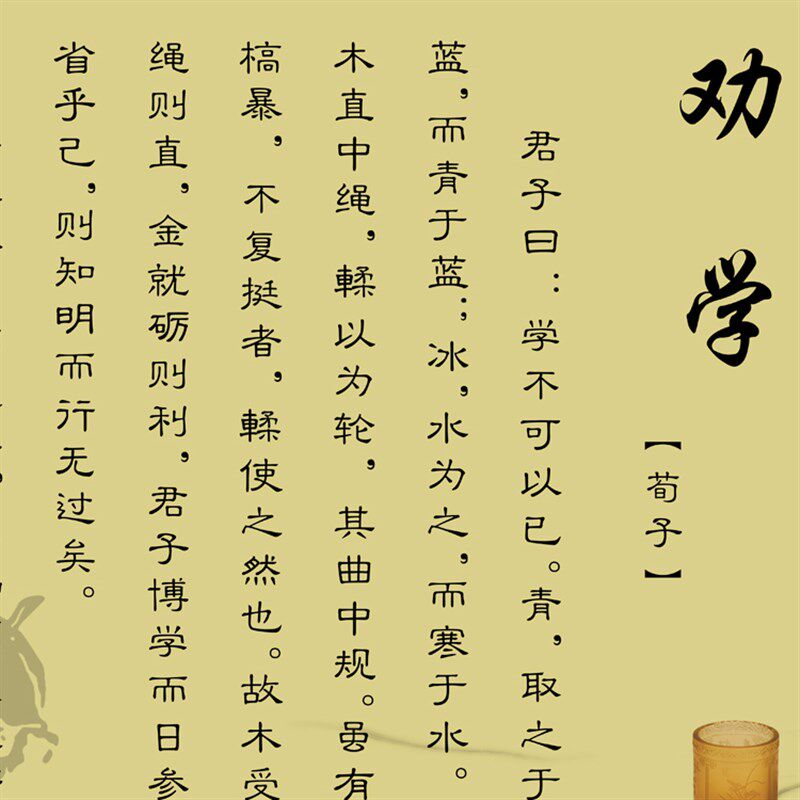 劝学
【荀子】
君子曰：学不可以已。青，取之于
蓝，而青于蓝；冰，水为之，而寒于水。
木直中绳，輮以为轮，其曲中规。虽有
槁暴，不复挺者，輮使之然也。故木受
绳则直，金就砺则利，君子博学而日参
省乎己，则知明而行无过矣。